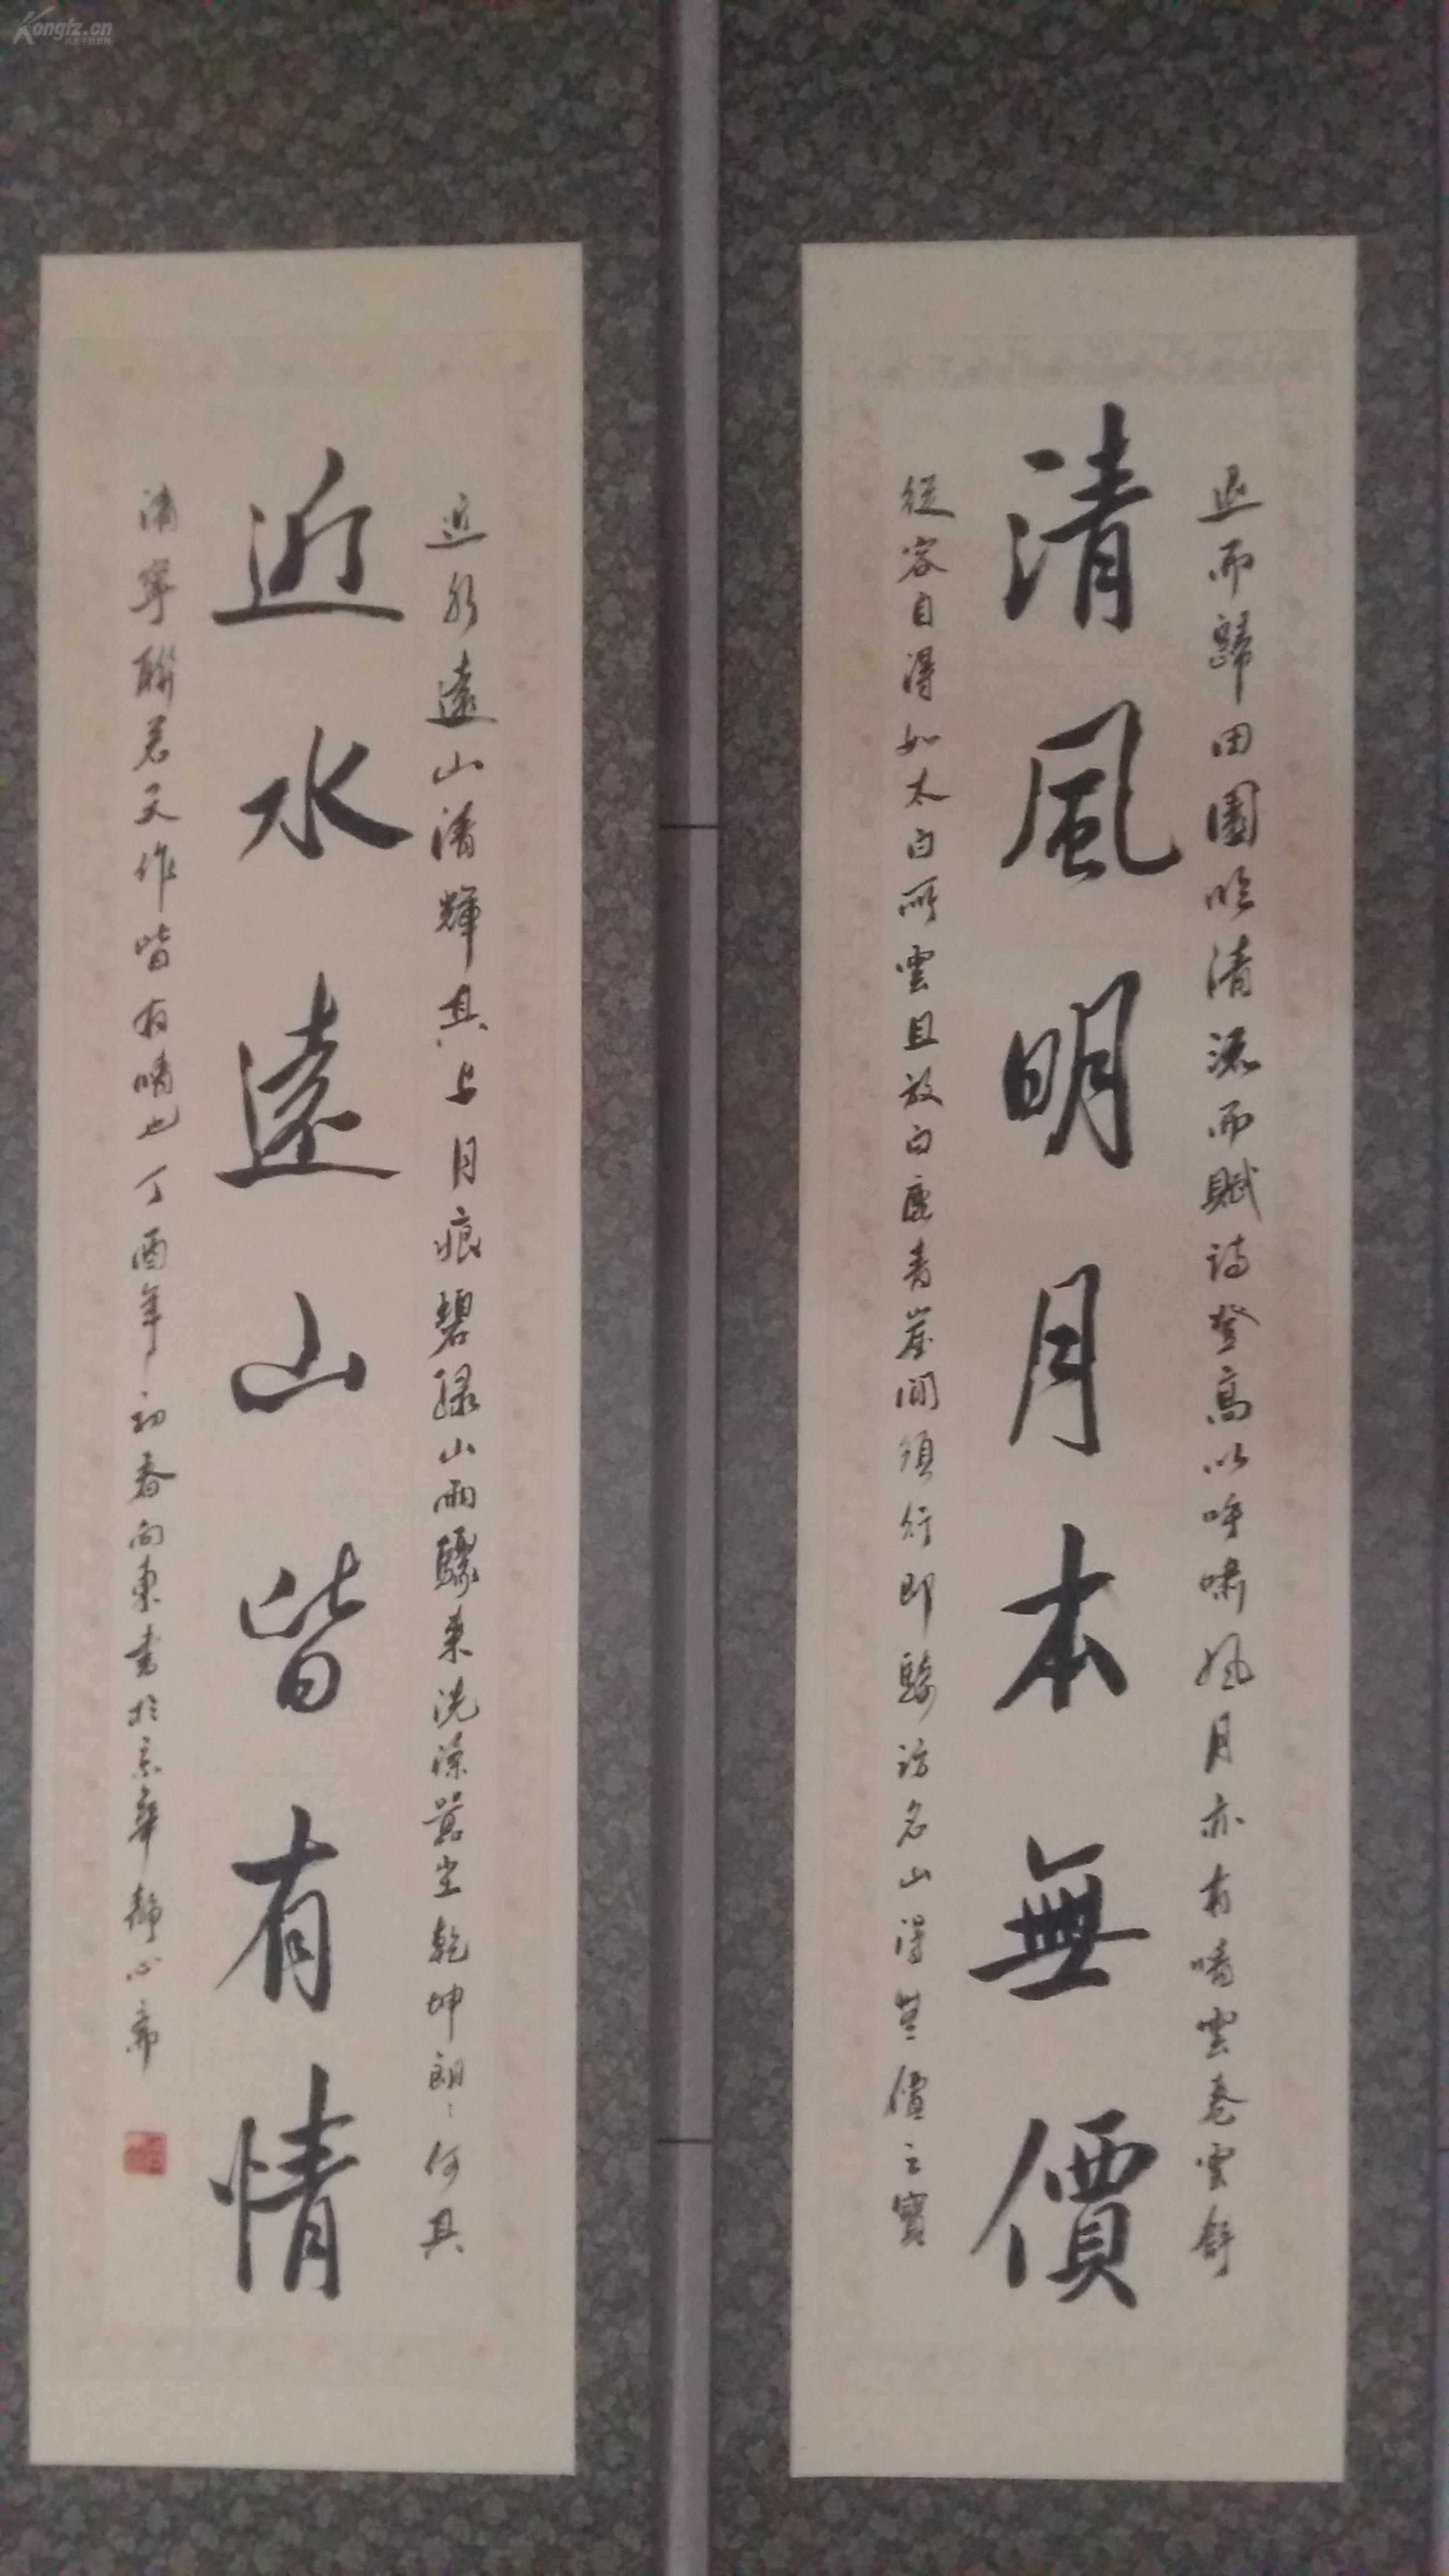 Kongfz.cn
清風明月本無價
退而歸田園臨清流而賦詩登高以呼嘯風月亦有情雲卷雲舒
從容自得如太白所雲且放白鹿青崖間須行即騎訪名山得無價之寶
近水遠山皆有情
近水遠山清輝其與月痕碧綠山雨驟來洗滌囂尘乾坤朗〻何其
清寧聯若天作皆有情也丁酉年初春向東書於京華靜心齋